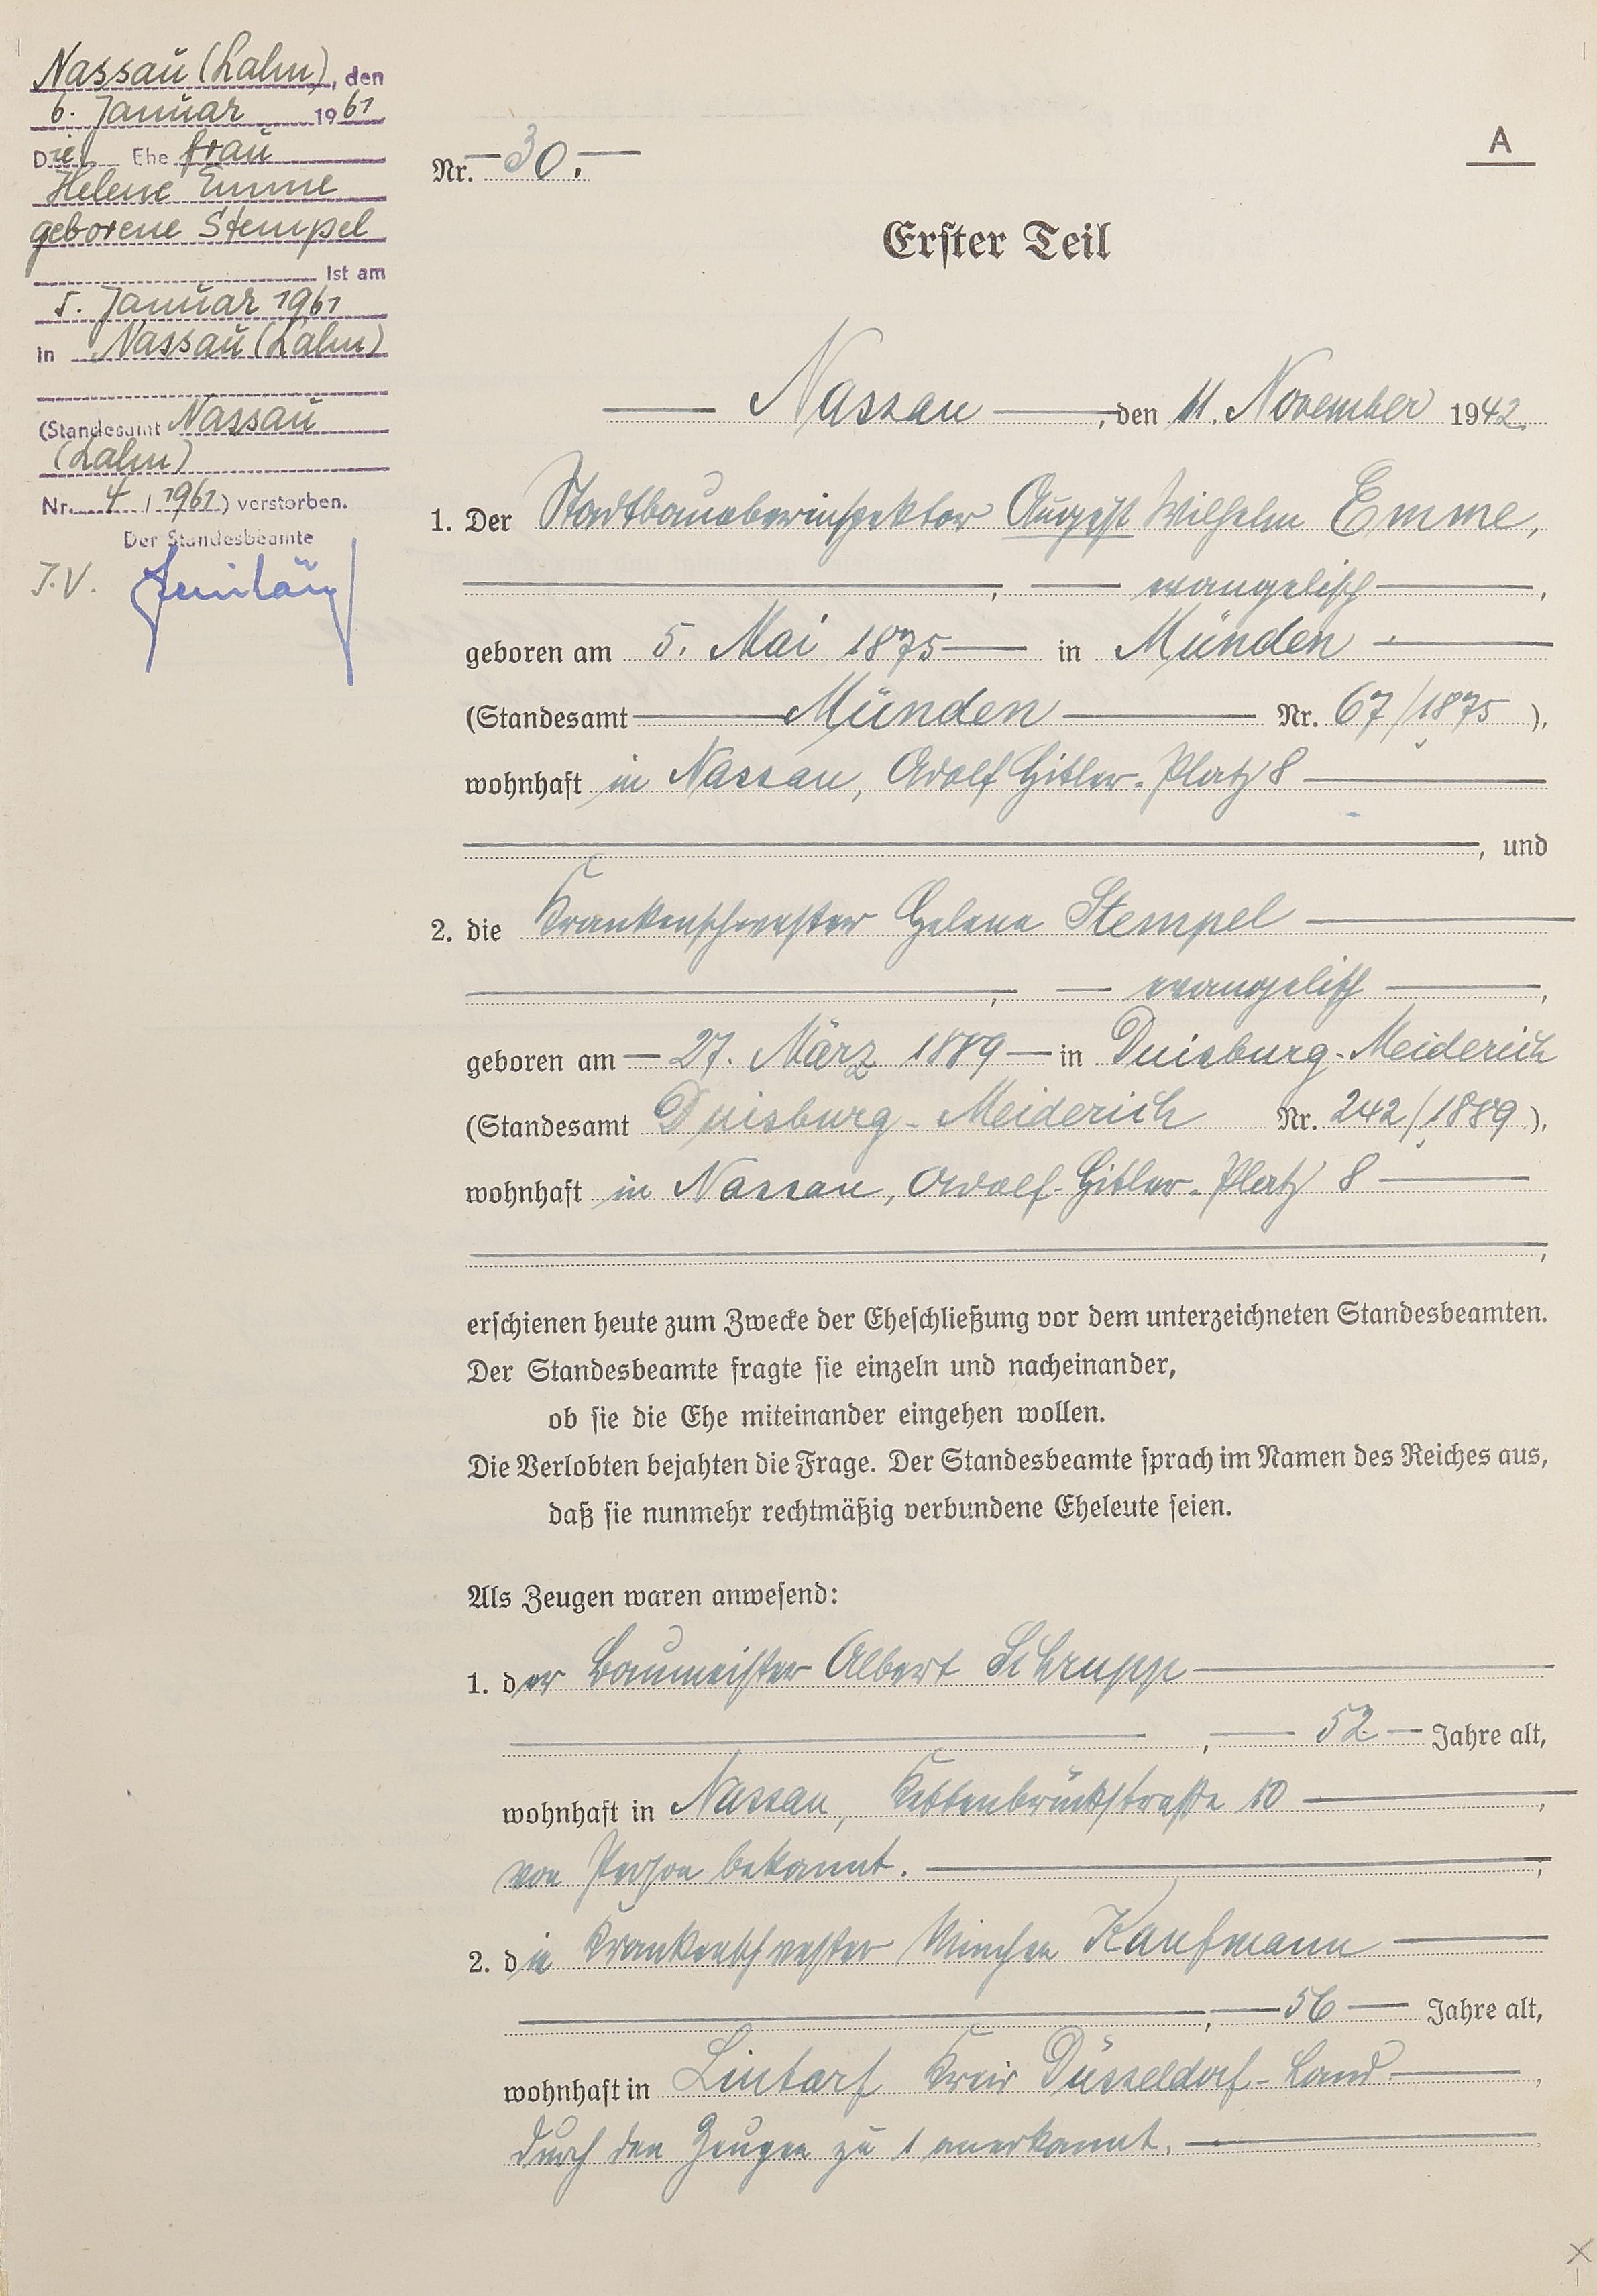 Nassau (Lahn), den
6. Januar 1961
Die Ehe frau
Helene Emme
geborene Stempel
ist am
5. Januar 1961
in Nassau (Lahn)
(Standesamt Nassau
(Lahn)
Nr. 4 / 1961) verstorben.
Der Standesbeamte
J.V.
A
Nr. 30.
Erster Teil
Nassau, den 11. November 1942.
1. Der Stadtbauoberinspektor August Wilhelm Emme,
, evangelisch,
geboren am 5. Mai 1875 in Münden
(Standesamt Münden Nr. 67/1875),
wohnhaft in Nassau, Adolf Hitler-Platz 8
, und
2. die Krankenschwester Helene Stempel
, evangelisch,
geboren am 27. März 1889 in Duisburg-Meiderich
(Standesamt Duisburg-Meiderich Nr. 242/1889),
wohnhaft in Nassau, Adolf-Hitler-Platz 8
,
erschienen heute zum Zwecke der Eheschließung vor dem unterzeichneten Standesbeamten.
Der Standesbeamte fragte sie einzeln und nacheinander,
ob sie die Ehe miteinander eingehen wollen.
Die Verlobten bejahten die Frage. Der Standesbeamte sprach im Namen des Reiches aus,
daß sie nunmehr rechtmäßig verbundene Eheleute seien.
Als Zeugen waren anwesend:
1. der Baumeister Albert Schrupp
, 52 Jahre alt,
wohnhaft in Nassau, Kettenbrückstraße 10,
von Person bekannt.
2. die Krankenschwester Minchen Kaufmann
, 56 Jahre alt,
wohnhaft in Lintorf Kreis Düsseldorf-Land,
durch den Zeugen zu 1 anerkannt.